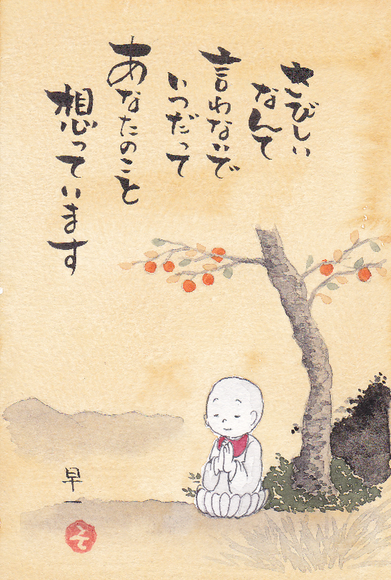 さびしい
なんて
言わないで
いつだって
あなたのこと
想っています
早一
そ